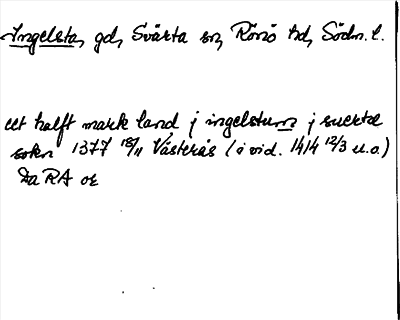 Ingelsta, gd, Svärta sn, Rönö hd, Södm. l.
ett halft mark land j ingelstum j suerta
sokn 1377 18/11 Västerås (i vid. 1414 12/3 u.o.)
Da RA or